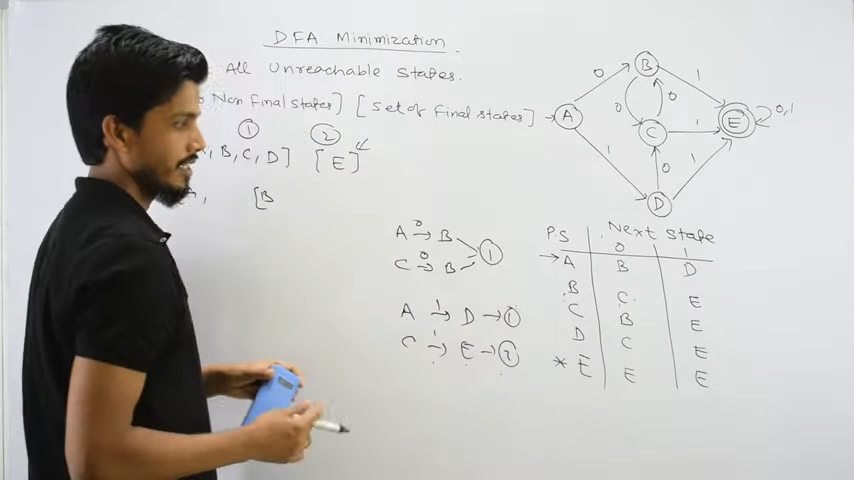 DFA Minimization
All Unreachable states.
Non Final states] [set of Final states]
①
②
, B, C, D] [E]
, [B
A 0→ B
C 0→ B
①
A 1→ D → ①
C 1→ E → ②
A
B
C
D
E
0
1
0
0
1
0,1
1
0
1
P.S Next state
0 1
→A B D
B C E
C B E
D C E
* E E E